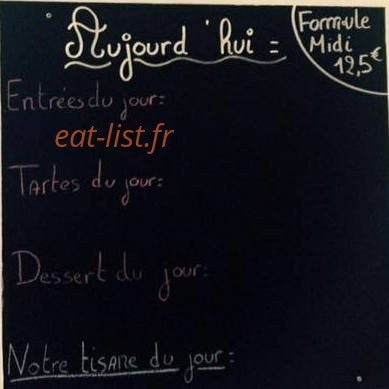 Aujourd'hui =
Formule
Midi
12,5€
Entrées du jour:
eat-list.fr
Tartes du jour:
Dessert du jour:
Notre tisane du jour: